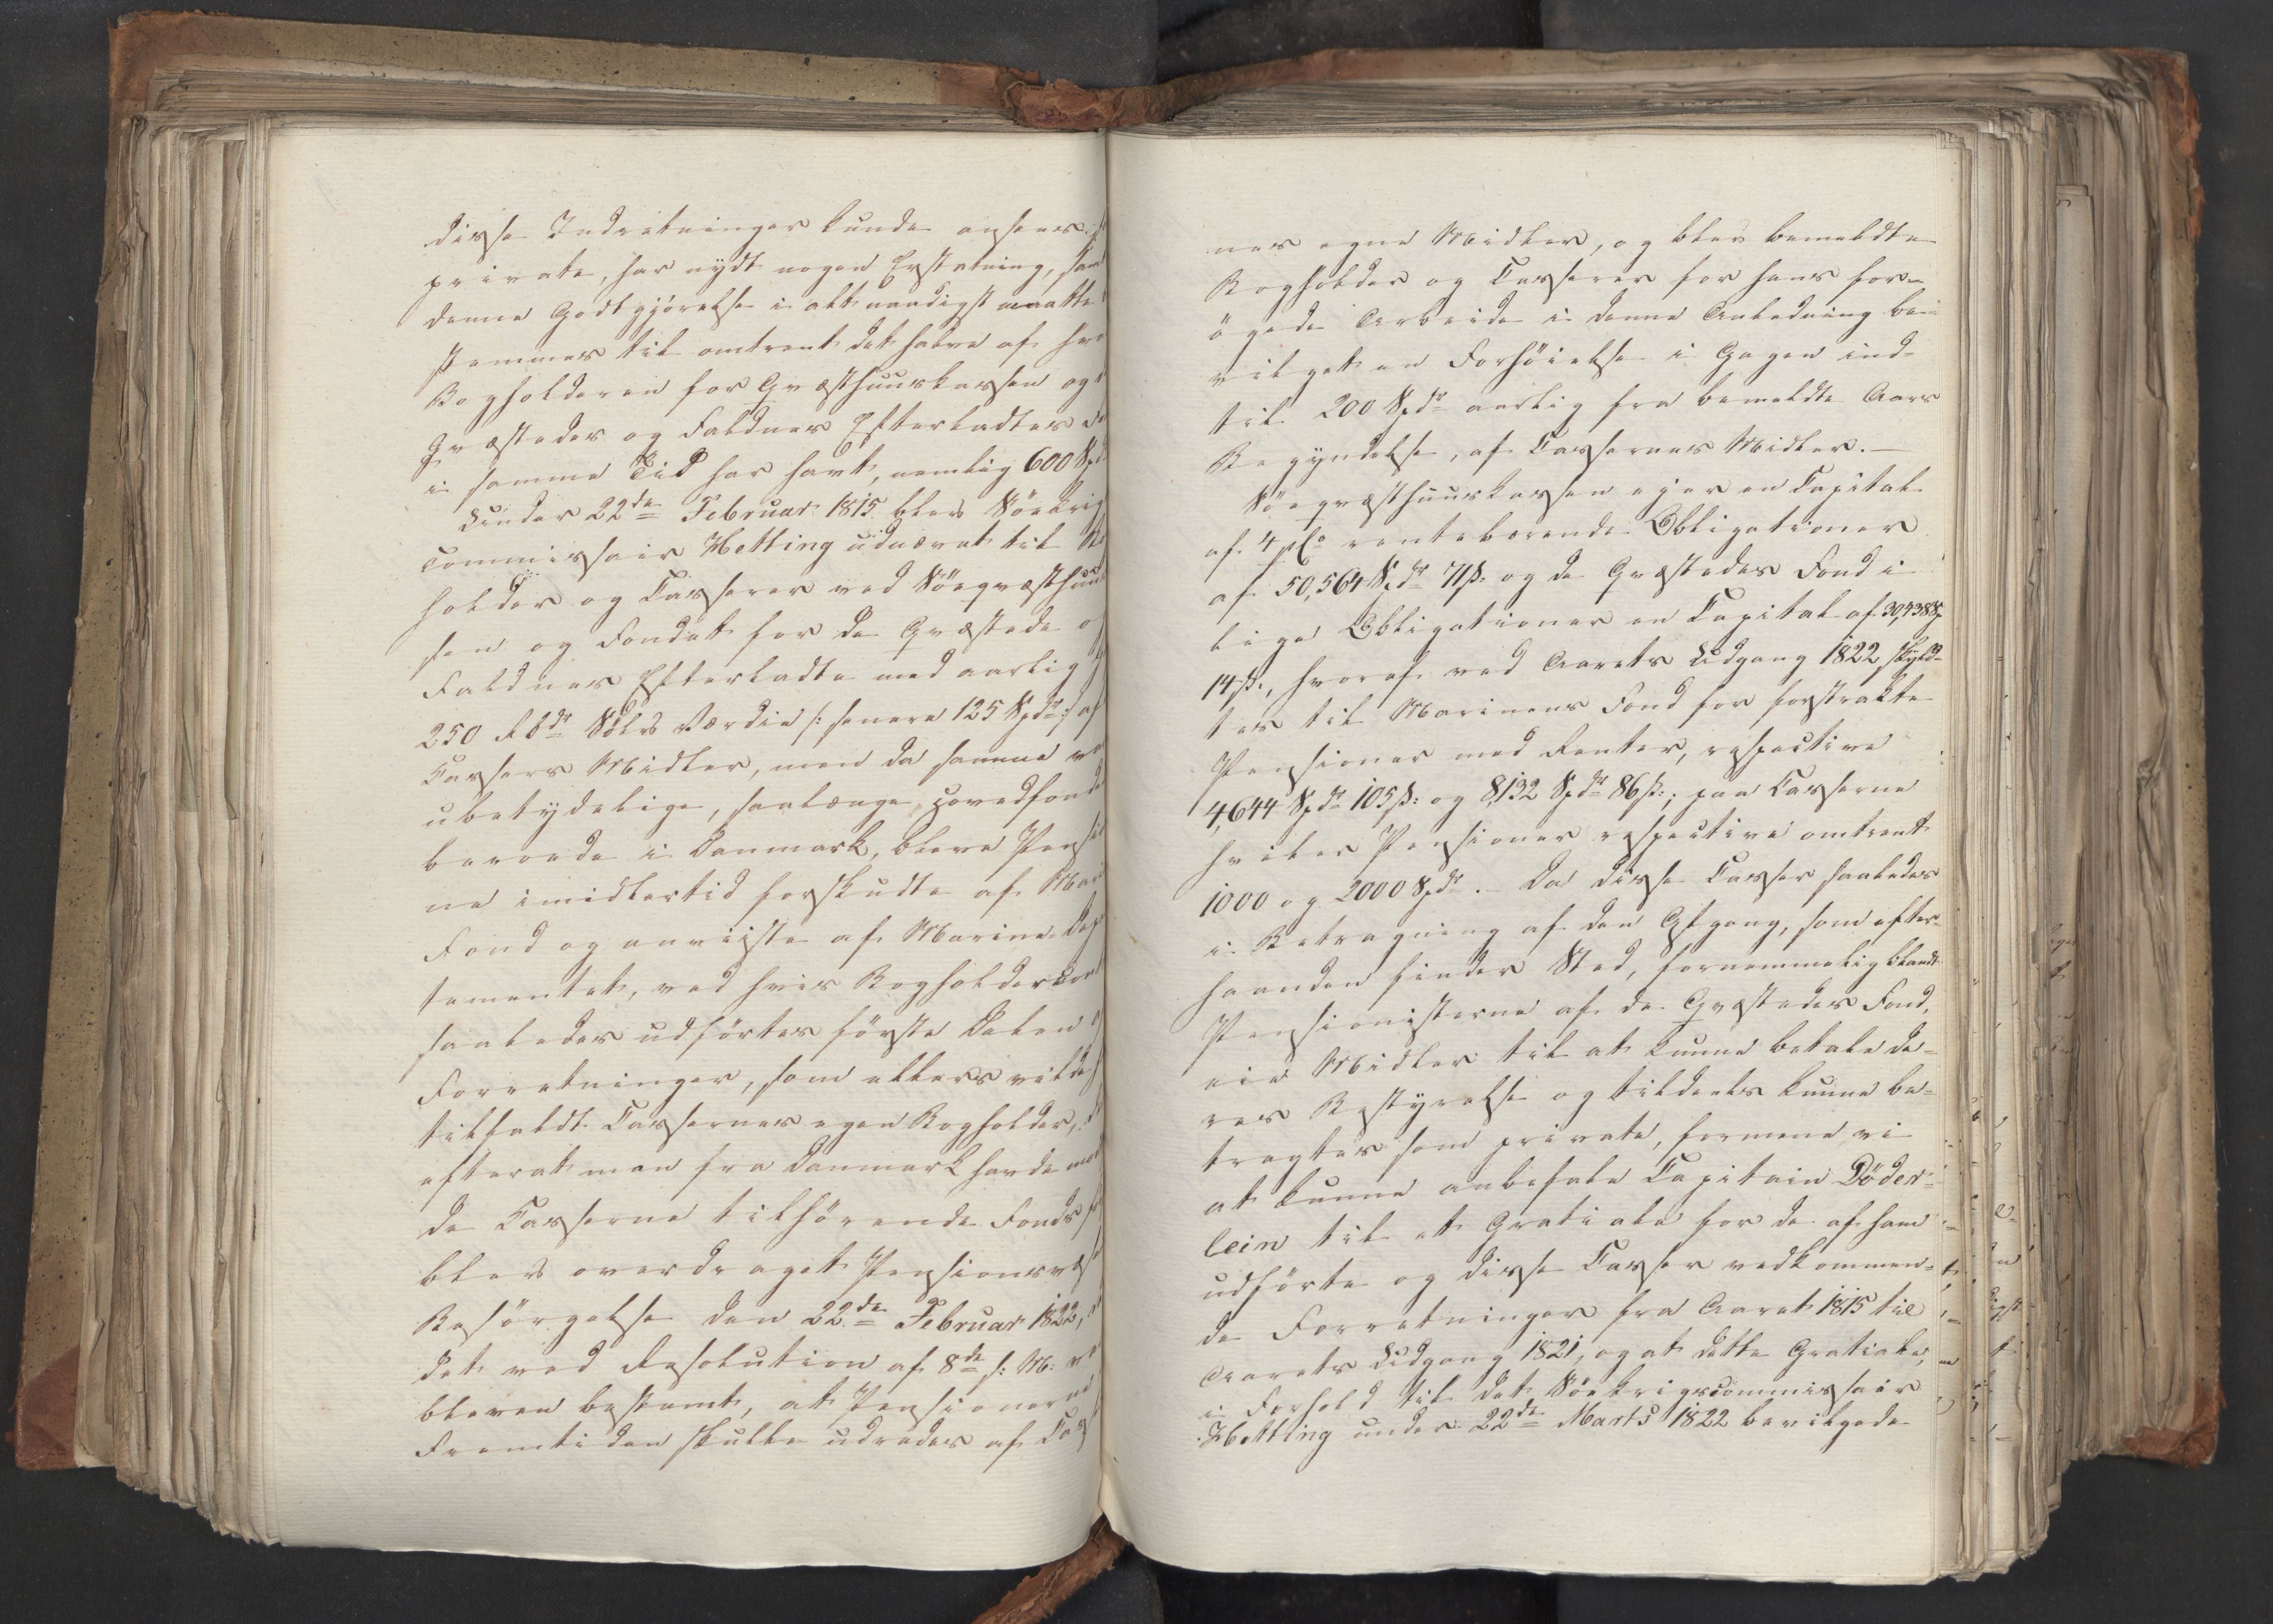 disse Indretninger kunde ansees
private, har nydt nogen Erstatning, samt
denne Godtgjørelse i allernaadigst maatte
stemmes til omtrent det halve af hva
Bogholderen for Qvæsthuuskassen og
Qvæstedes og Faldnes Efterladtes Fo
i samme Tid har havt, nemlig 600 Spd
Under 22de Februar 1815 blev Söekrigs
commissair Hetting udnævnt til Bo
holder og Casserer ved Söeqvæsthuus
sen og Fondet for de Qvæstede o
Faldnes Efterladte med aarlig
250 Rbdr Sölvs Værdie /: senere 125 Spdr :/ af
Cassers Midler, men da samme va
ubetydelige, saalænge Hovedfonde
beroede i Danmark, bleve Pensio
ne imidlertid forskudte af Mari
Fond og anviiste af Marine-Dep
tementet, ved hvis Bogholdercont
saaledes udførtes første Delen
Forretninger, som ellers vilde
tilfaldt Cassernes egen Bogholder,
efterat man fra Danmark havde mod
de Casserne tilhørende Fonds
blev overdraget Pensionsvæs
Besørgelse den 22de Februar 1822,
det ved Resolution af 8de s: M: va
bleven bestemt, at Pensionerne
Fremtiden skulle udredes af Cas
nes egne Midler, og blev bemeldte
Bogholder og Casserer for hans for-
øgede Arbeide i denne Anledning be-
vilget en Forhøielse i Gagen ind-
til 200 Spdr aarlig fra bemeldte Aars
Begyndelse, af Cassernes Midler.-
Söeqvæsthuuskassen ejer en Capital
af 4 pCo rentebærende Obligationer
af 50,564 Spdr 71 ß: og de Qvæstedes Fond i
lige Obligationer en Capital af 30,438 Sp
14 ß:, hvoraf ved Aarets Udgang 1822 skyld-
tes til Marinens Fond for forstrakte
Pensioner med Renter, respective
4,644 Spdr 105 ß: og 8,132 Spdr 86 ß:; paa Casserne
hviler Pensioner respective omtrent
1000 og 2000 Spdr.- Da disse Casser saaledes
i Betragtning af den Afgang, som efter-
haanden finder Sted, fornemmelig blandt
Pensionisterne af de Qvæstedes Fond,
eie Midler til at kunne betale de-
res Bestyrelse og tildeels kunne be-
tragtes som private, formene vi
at kunne anbefale Capitain Döder-
lein til et Gratiale for de af ham
udførte og disse Casser vedkommen-
de Forretninger fra Aaret 1815 til
Aarets Udgang 1821, og at dette Gratiale,
i Forhold til det Söekrigscommissair
Hetting under 22de Marts 1822 bevilgede